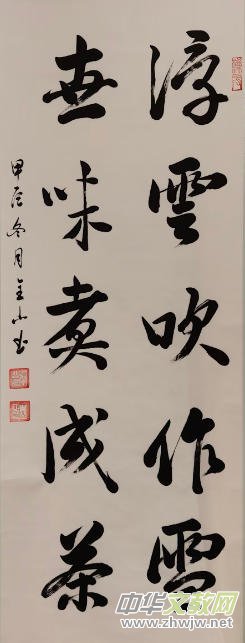 浮雲吹作雪
世味煮成茶
甲辰冬月金山書
中华文教网
www.zhwjw.net